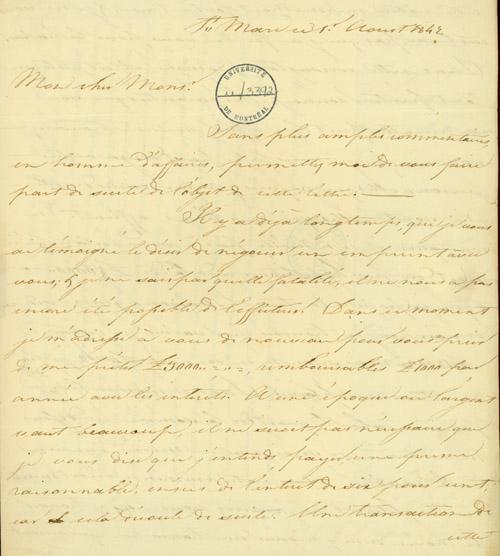 Ste Marie 1r Aoust 1842
Mon cher Monsr
UNIVERSITÉ
/3392
DE MONTRÉAL
Sans plus amples commentaires,
en homme d'affaires, permettez moi de vous faire
part de suite de l'objet de cette lettre.
Il y a déja longtemps, que je vous
ai témoigné le désir de négocier un emprunt avec
vous, & je ne sais par quelle fatalité, il ne nous a pas
encore été possible de l'effectuer. Dans ce moment
je m'adresse à vous de nouveau pour vous prier
de me prêter £3000.. =.=., remboursables £1000 par
année avec les interets. A une époque ou l'argent
vaut beaucoup, il ne serait pas nécessaire que
je vous dise que j'entends payer une prime
raisonnable, en sus de l'intérêt de six pour cent
car cela découle de suite. Une transaction de
cette